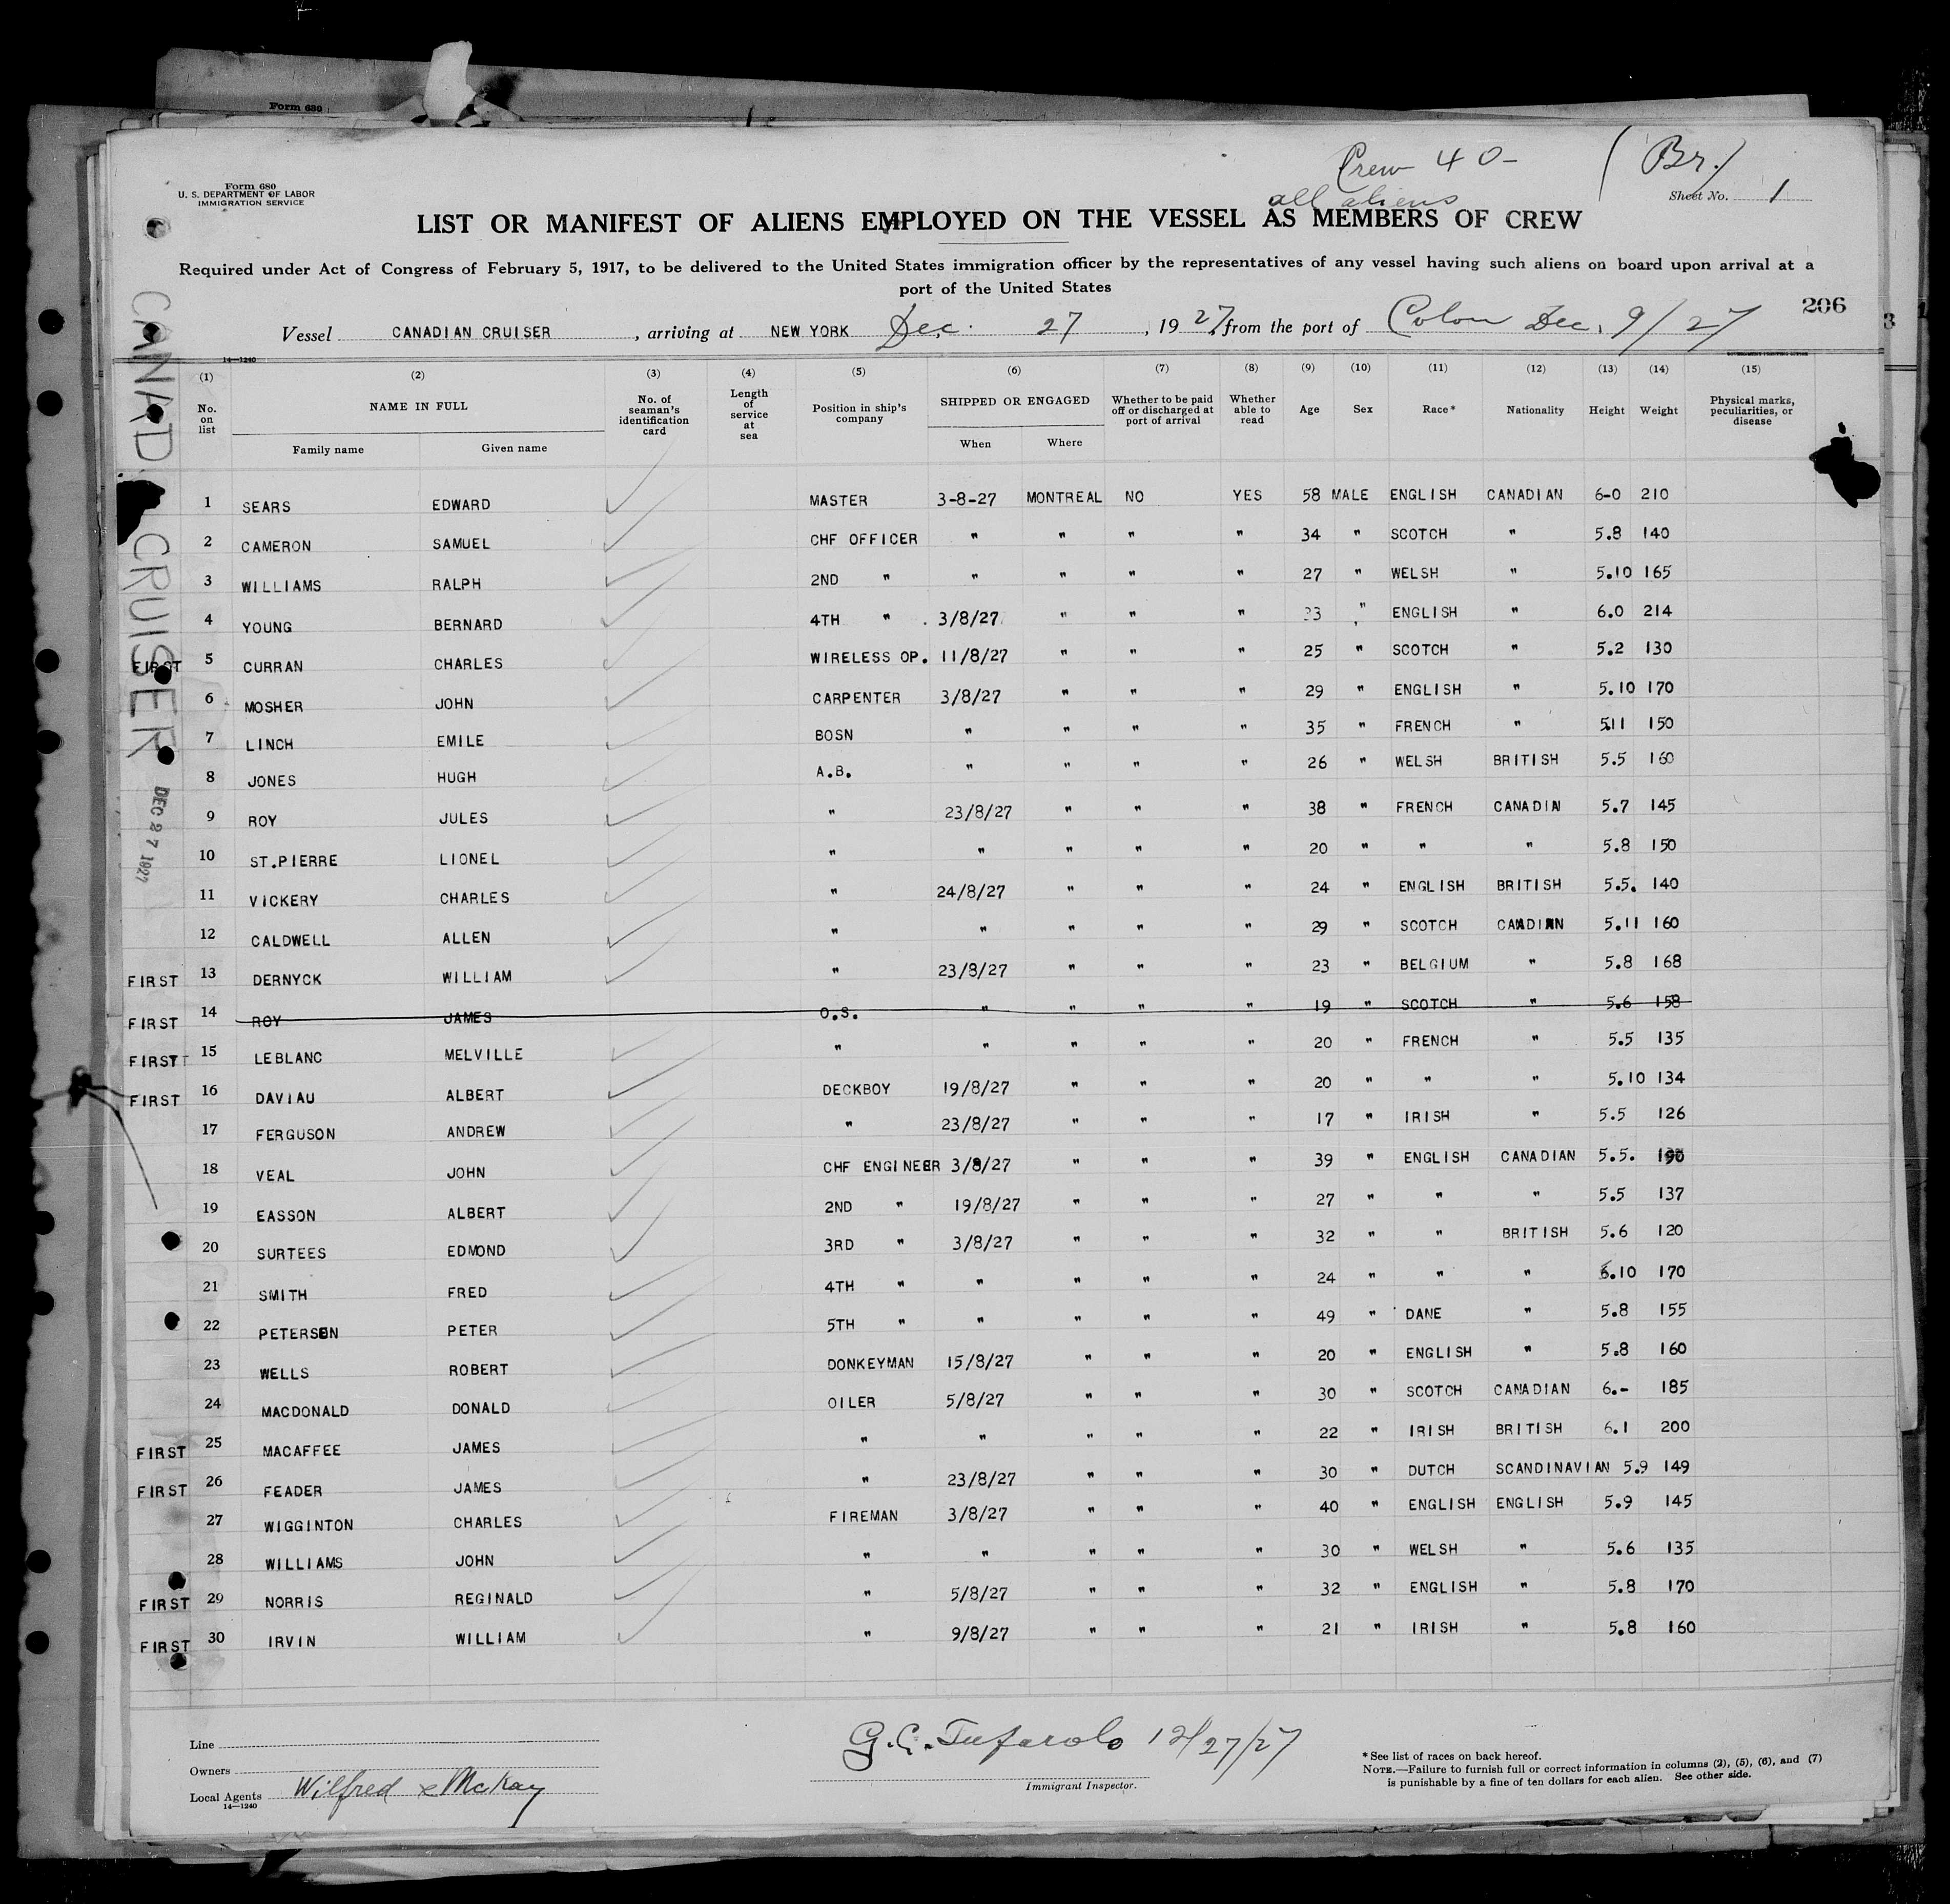 Form 680
Crew 40-
(Br.)
Form 680
U. S. DEPARTMENT OF LABOR
IMMIGRATION SERVICE
all aliens
Sheet No. 1
LIST OR MANIFEST OF ALIENS EMPLOYED ON THE VESSEL AS MEMBERS OF CREW
Required under Act of Congress of February 5, 1917, to be delivered to the United States immigration officer by the representatives of any vessel having such aliens on board upon arrival at a
port of the United States
206
Vessel CANADIAN CRUISER, arriving at NEW YORK Dec. 27, 1927, from the port of Colon Dec. 9/27
14—1240
CANAD. CRUISER
DEC 27 1927
(1) (2) (3) (4) (5) (6) (7) (8) (9) (10) (11) (12) (13) (14) (15)
No. on list NAME IN FULL No. of seaman's identification card Length of service at sea Position in ship's company SHIPPED OR ENGAGED Whether to be paid off or discharged at port of arrival Whether able to read Age Sex Race* Nationality Height Weight Physical marks, peculiarities, or disease
Family name Given name When Where
1 SEARS EDWARD MASTER 3-8-27 MONTREAL NO YES 58 MALE ENGLISH CANADIAN 6-0 210
2 CAMERON SAMUEL CHF OFFICER " " " " 34 " SCOTCH " 5.8 140
3 WILLIAMS RALPH 2ND " " " " " 27 " WELSH " 5.10 165
4 YOUNG BERNARD 4TH " 3/8/27 " " " 23 " ENGLISH " 6.0 214
FIRST 5 CURRAN CHARLES WIRELESS OP. 11/8/27 " " " 25 " SCOTCH " 5.2 130
6 MOSHER JOHN CARPENTER 3/8/27 " " " 29 " ENGLISH " 5.10 170
7 LINCH EMILE BOSN " " " " 35 " FRENCH " 5.11 150
8 JONES HUGH A.B. " " " " 26 " WELSH BRITISH 5.5 160
9 ROY JULES " 23/8/27 " " " 38 " FRENCH CANADIN 5.7 145
10 ST.PIERRE LIONEL " " " " " 20 " " " 5.8 150
11 VICKERY CHARLES " 24/8/27 " " " 24 " ENGLISH BRITISH 5.5. 140
12 CALDWELL ALLEN " " " " " 29 " SCOTCH CANDIAN 5.11 160
FIRST 13 DERNYCK WILLIAM " 23/8/27 " " " 23 " BELGIUM " 5.8 168
FIRST 14 ROY JAMES O.S. " " " " 19 " SCOTCH " 5.6 158
FIRST 15 LEBLANC MELVILLE " " " " " 20 " FRENCH " 5.5 135
FIRST 16 DAVIAU ALBERT DECKBOY 19/8/27 " " " 20 " " " 5.10 134
17 FERGUSON ANDREW " 23/8/27 " " " 17 " IRISH " 5.5 126
18 VEAL JOHN CHF ENGINEER 3/8/27 " " " 39 " ENGLISH CANADIAN 5.5. 190
19 EASSON ALBERT 2ND " 19/8/27 " " " 27 " " " 5.5 137
20 SURTEES EDMOND 3RD " 3/8/27 " " " 32 " " BRITISH 5.6 120
21 SMITH FRED 4TH " " " " " 24 " " " 5.10 170
22 PETERSEN PETER 5TH " " " " " 49 " DANE " 5.8 155
23 WELLS ROBERT DONKEYMAN 15/8/27 " " " 20 " ENGLISH " 5.8 160
24 MACDONALD DONALD OILER 5/8/27 " " " 30 " SCOTCH CANADIAN 6.- 185
FIRST 25 MACAFFEE JAMES " " " " " 22 " IRISH BRITISH 6.1 200
FIRST 26 FEADER JAMES " 23/8/27 " " " 30 " DUTCH SCANDINAVIAN 5.9 149
27 WIGGINTON CHARLES FIREMAN 3/8/27 " " " 40 " ENGLISH ENGLISH 5.9 145
28 WILLIAMS JOHN " " " " " 30 " WELSH " 5.6 135
FIRST 29 NORRIS REGINALD " 5/8/27 " " " 32 " ENGLISH " 5.8 170
FIRST 30 IRVIN WILLIAM " 9/8/27 " " " 21 " IRISH " 5.8 160
Line
Owners
Local Agents Wilfred & McKay
14—1240
G.C. Tufarolo 12/27/27
Immigrant Inspector.
*See list of races on back hereof.
NOTE.—Failure to furnish full or correct information in columns (2), (5), (6), and (7)
is punishable by a fine of ten dollars for each alien. See other side.